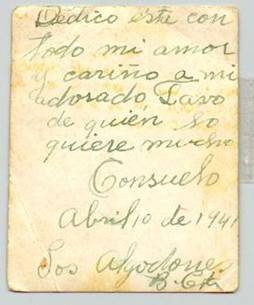 Dedico este con
todo mi amor
y cariño a mi
adorado Tavo
de quién lo
quiere mucho
Consuelo
Abril 10 de 1941
Los Algodones
B. Cfa.